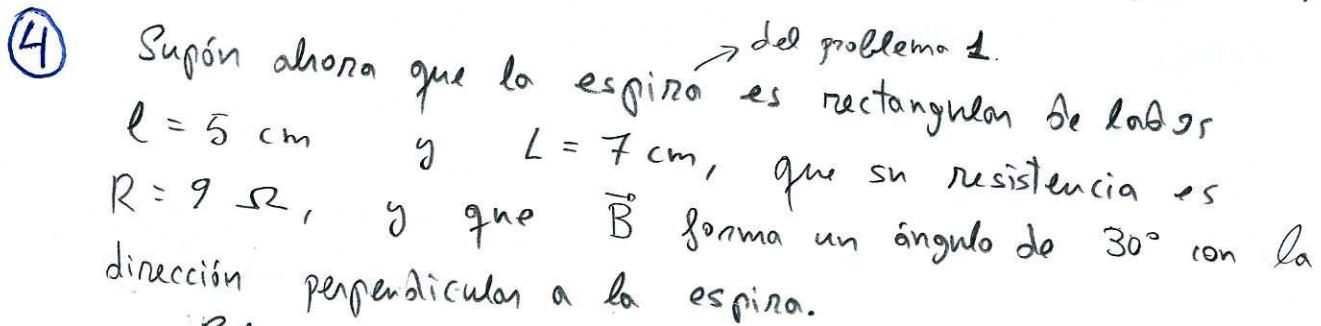 ④ Supón ahora que la espira es rectangular de lados
del problema 1.
l = 5 cm y L = 7 cm, que su resistencia es
R = 9 Ω, y que B⃗ forma un ángulo de 30° con la
dirección perpendicular a la espira.